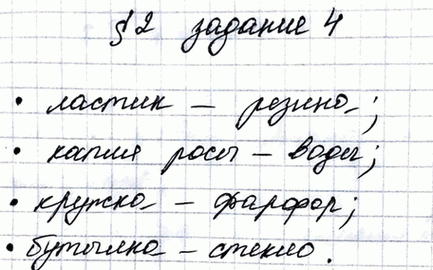 §2 задание 4
• ластик – резина;
• капля росы – воды;
• кружка – фарфор;
• бутылка – стекло.